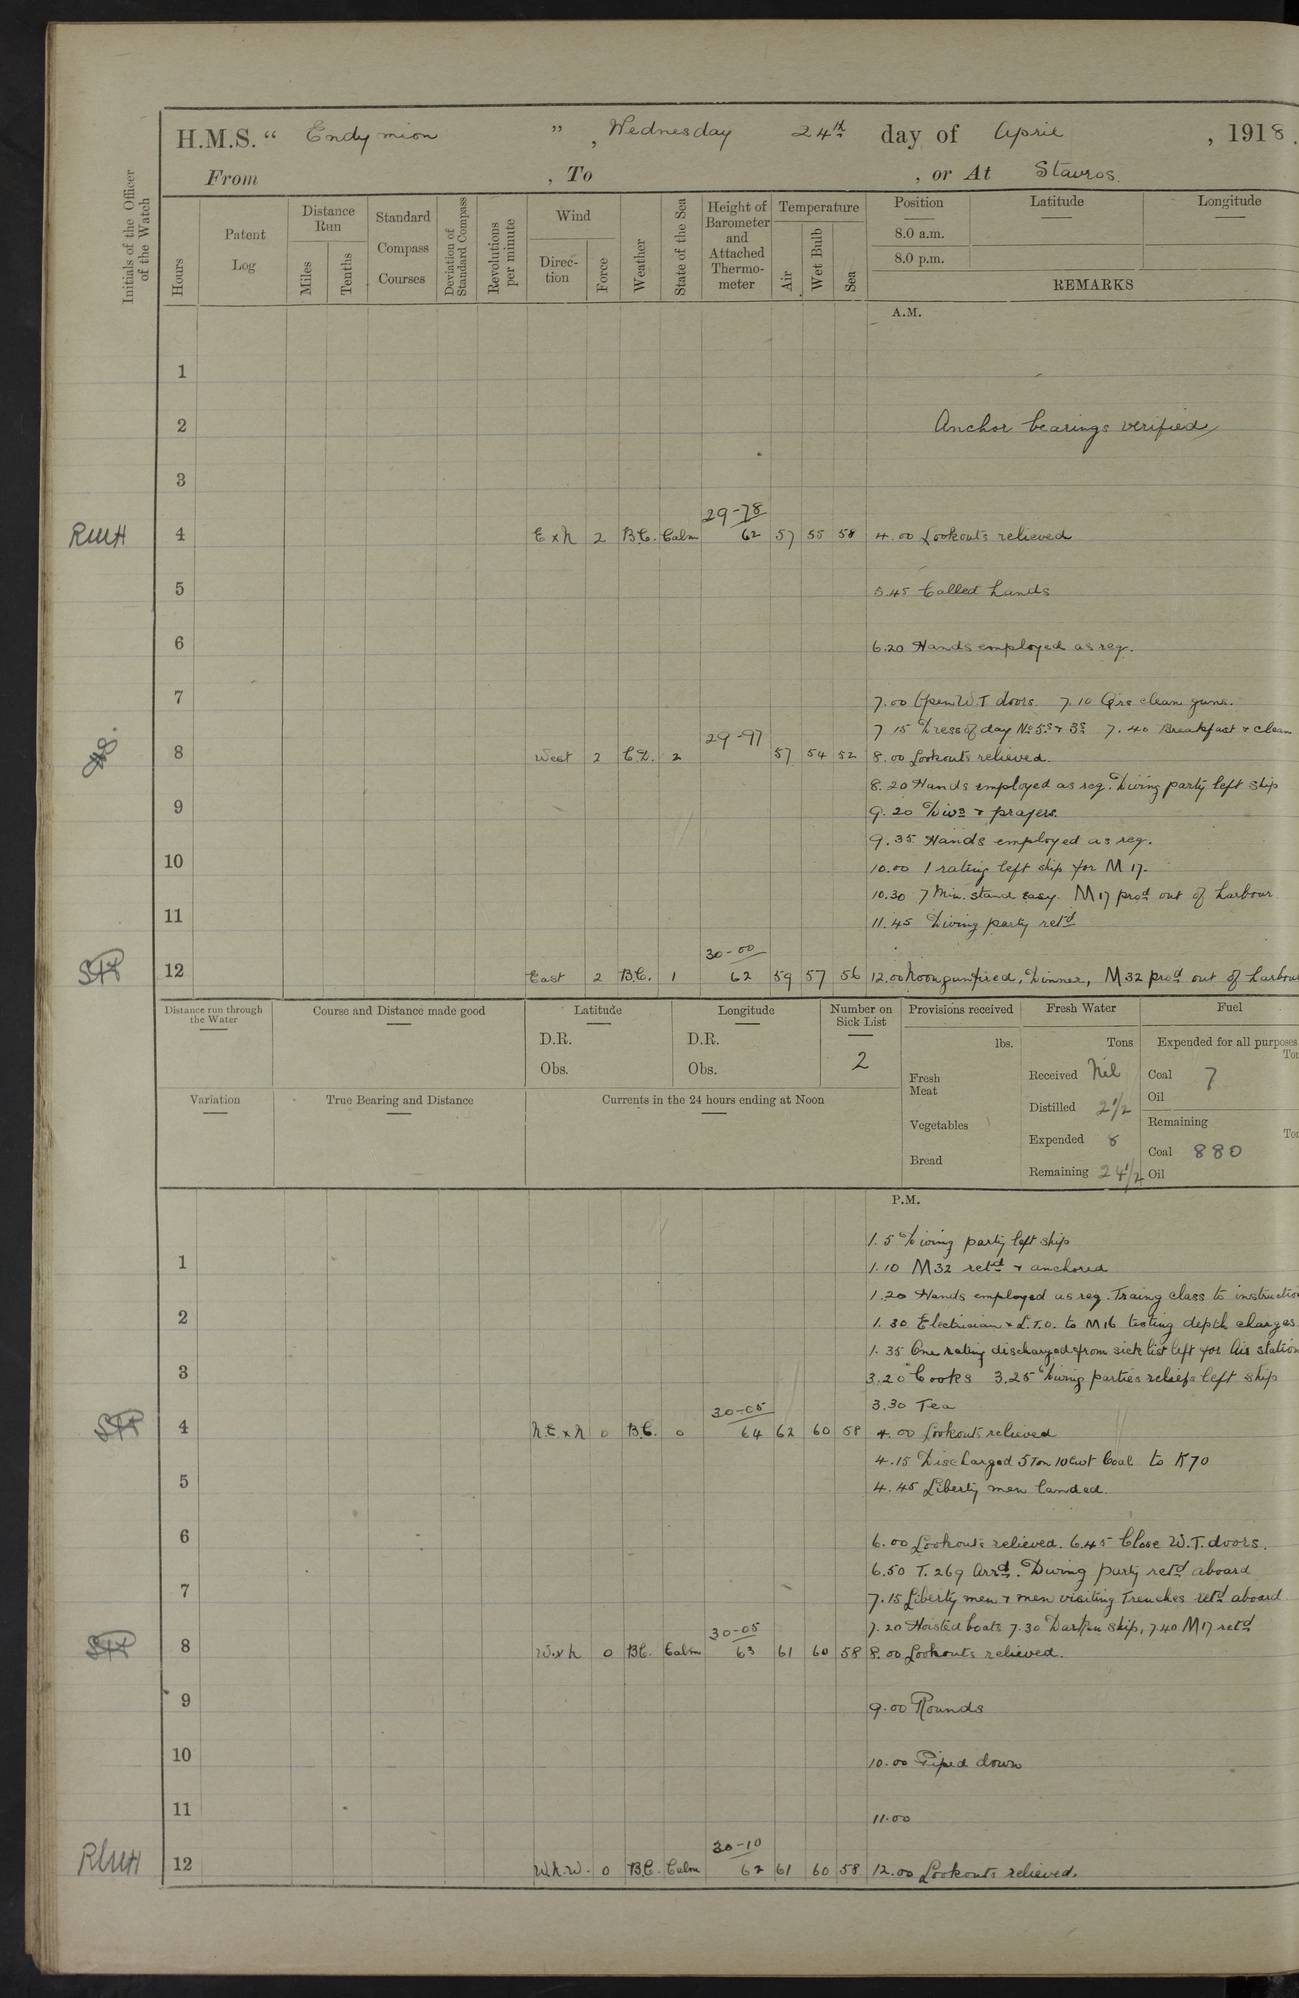 H.M.S. “ Endymion ” , Wednesday 24th day of April , 1918.
From , To , or At Stavros.
Initials of the Officer of the Watch
Hours
Patent Log
Distance Run
Miles
Tenths
Standard Compass Courses
Deviation of Standard Compass
Revolutions per minute
Wind
Direc-tion
Force
Weather
State of the Sea
Height of Barometer and Attached Thermo-meter
Temperature
Air
Wet Bulb
Sea
Position Latitude Longitude
8.0 a.m.
8.0 p.m.
REMARKS
A.M.
1
2 Anchor bearings verified
3
29-78
4 E x N 2 B.C. Calm 62 57 55 58 4.00 Lookouts relieved
5 5.45 Called hands
6 6.20 Hands employed as req.
7 7.00 Open W.T doors 7.10 Qrs clean guns.
7.15 Dress of day No 5s & 3s 7.40 Breakfast & clean
29-97
8 West 2 C.D. 2 57 54 52 8.00 Lookouts relieved.
8.20 Hands employed as req. Diving party left ship
9 9.20 Divs & prayers.
9.35 Hands employed as req.
10 10.00 1 rating left ship for M 17.
10.30 7 Min. stand easy M17 procd out of harbour
11 11.45 Diving party retd
30-00
12 East 2 B.C. 1 62 59 57 56 12.00 Noon gun fired, Dinner, M32 procd out of harbour
Distance run through the Water
Course and Distance made good
Latitude
D.R.
Obs.
Longitude
D.R.
Obs.
Number on Sick List
2
Provisions received
lbs.
Fresh Meat
Vegetables
Bread
Fresh Water
Tons
Received Nil
Distilled 2 1/2
Expended 8
Remaining 24 1/2
Fuel
Expended for all purposes
Coal 7
Oil
Remaining
Coal 880
Oil
Variation
True Bearing and Distance
Currents in the 24 hours ending at Noon
P.M.
1.5 Diving party left ship
1 1.10 M32 retd & anchored
1.20 Hands employed as req. Traing class to instruction
2 1.30 Electrician & L.T.O. to M16 testing depth charges
1.35 One rating discharged from sick list left for Air station
3 3.20 Cooks 3.25 Diving parties reliefs left ship
3.30 Tea
30-05
4 N.E x N 0 B.C. 0 64 62 60 58 4.00 Lookouts relieved
4.15 Discharged 5 Ton 10 Cwt Coal to K70
5 4.45 Liberty men landed.
6 6.00 Lookouts relieved. 6.45 Close W.T. doors.
6.50 T. 269 Arrd. Diving party retd aboard
7 7.15 Liberty men & men visiting Trenches retd aboard
7.20 Hoisted boats 7.30 Darken ship, 7.40 M17 retd
30-05
8 W x N 0 B.C. Calm 63 61 60 58 8.00 Lookouts relieved.
9 9.00 Rounds
10 10.00 Piped down
11 11.00
30-10
12 W.N.W. 0 B.C. Calm 62 61 60 58 12.00 Lookouts relieved.